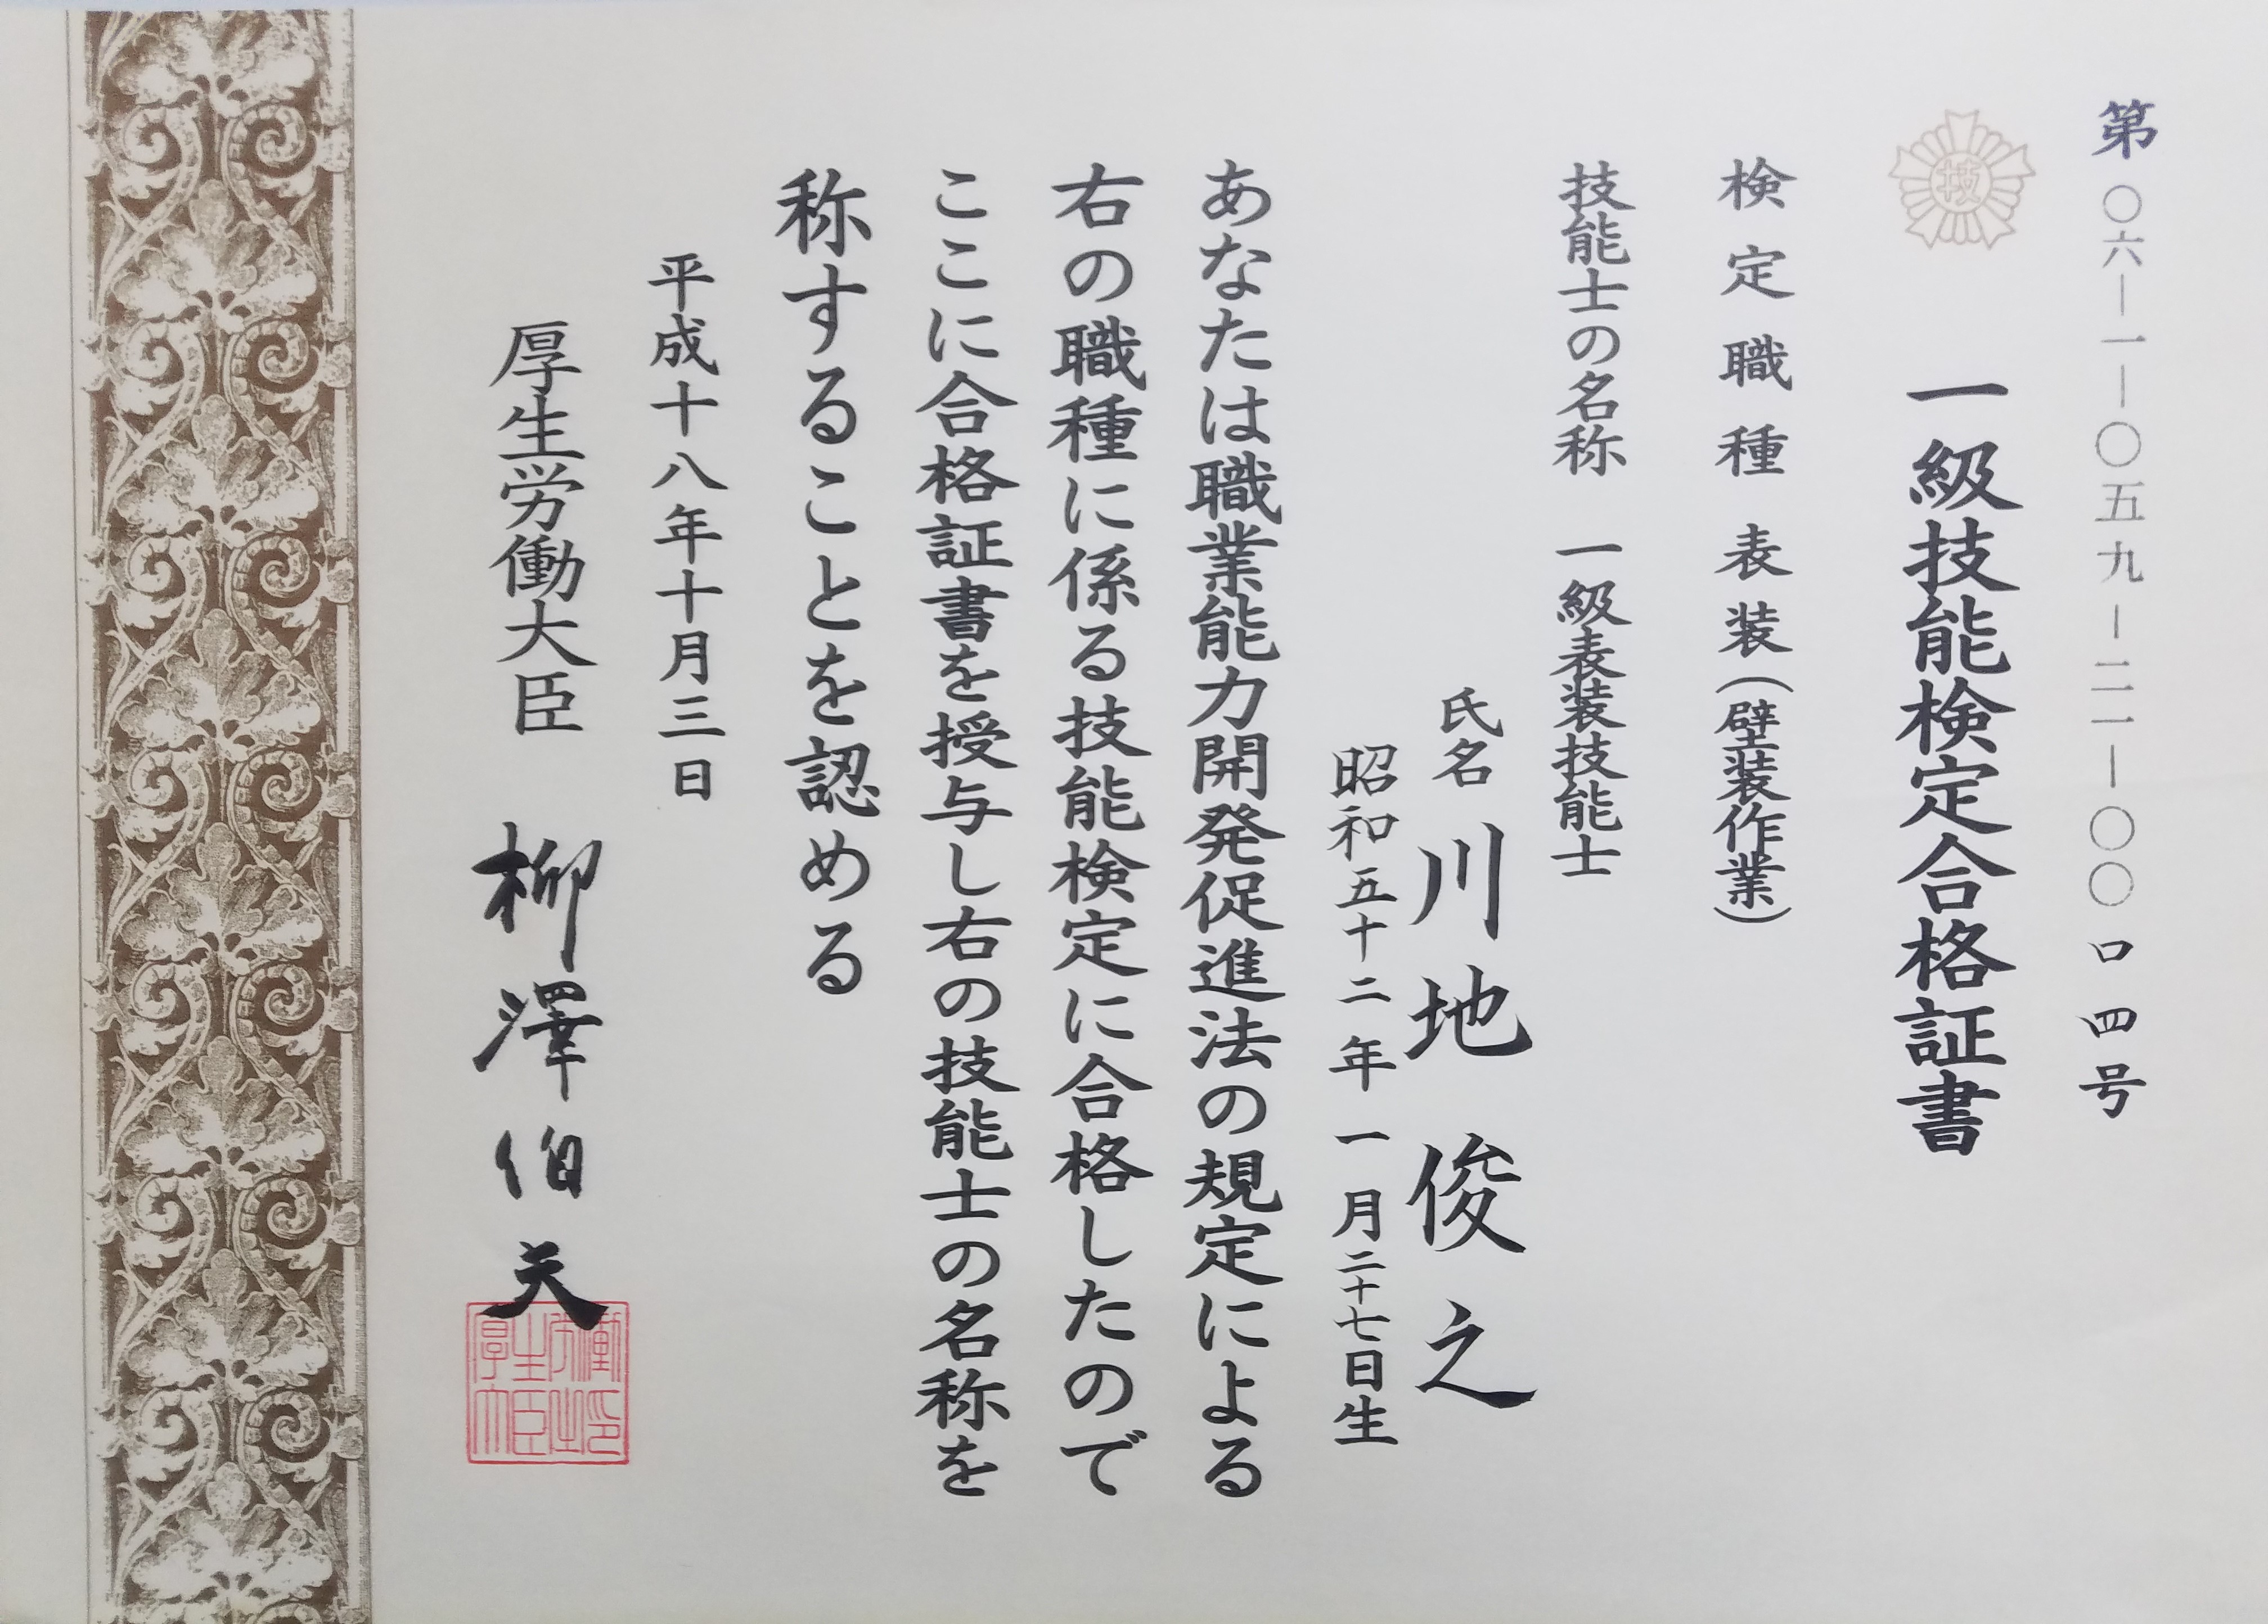 第〇六―一―〇五九―二一―〇〇口四号
技
一級技能検定合格証書
検定職種 表装(壁装作業)
技能士の名称 一級表装技能士
氏名 川地 俊之
昭和五十二年一月二十七日生
あなたは職業能力開発促進法の規定による
右の職種に係る技能検定に合格したので
ここに合格証書を授与し右の技能士の名称を
称することを認める
平成十八年十月三日
厚生労働大臣 柳澤伯夫